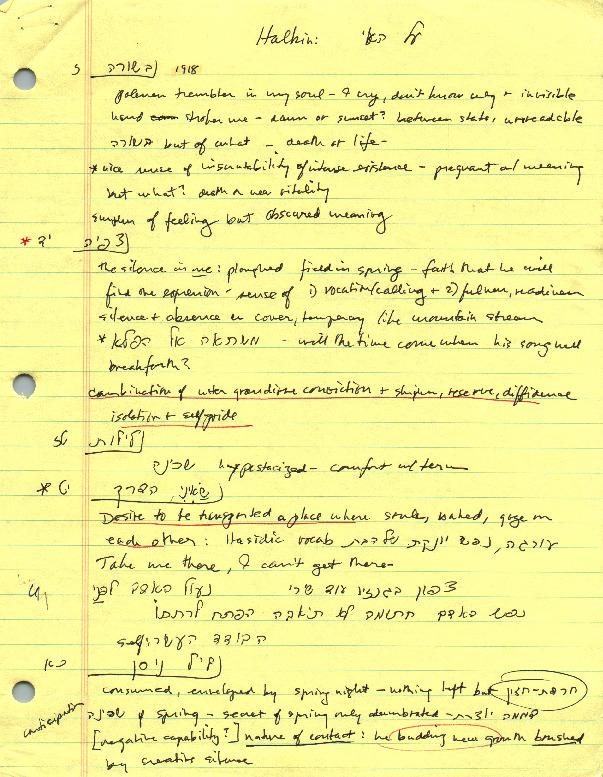 Halkin: על האי
בשורה 1918
trembles in my soul - I cry, don't know why + invisible
hand strokes me - dawn or sunset? between states, unreadable
בשורה but of what - death or life -
* nice sense of inscrutability of intense existence - pregnant w/ meaning
but what? death or new vitality
surplus of feeling but obscured meaning
* יד צפיה
the silence in me: ploughed field in spring - faith that he will
find one expression - sense of 1) vocation/calling + 2) fulness, readiness
silence + absence as cover, temporary like mountain stream
* אל הפלא - will the time come when his song will
break forth?
combination of utter grandiose conviction + reserve, diffidence
isolation + self pride
לילות
hypostacized - comfort w/ term
* שאיני, הברך
Desire to be transported a place where souls, naked, gaze on
each other: Hasidic vocab נפש יונקת שלהבת עורגה,
Take me there, I can't get there -
צפון בגנזיו עוד שרי נעול האבד לפני
נפש באדם
הבודד העשרו self
ליל ניסן
כא
consumed, enveloped by spring night - nothing left but
anticipation
of spring - secret of spring only adumbrated - שכינה
[negative capability?] nature of contact: he budding new growth brushed
by creative silence